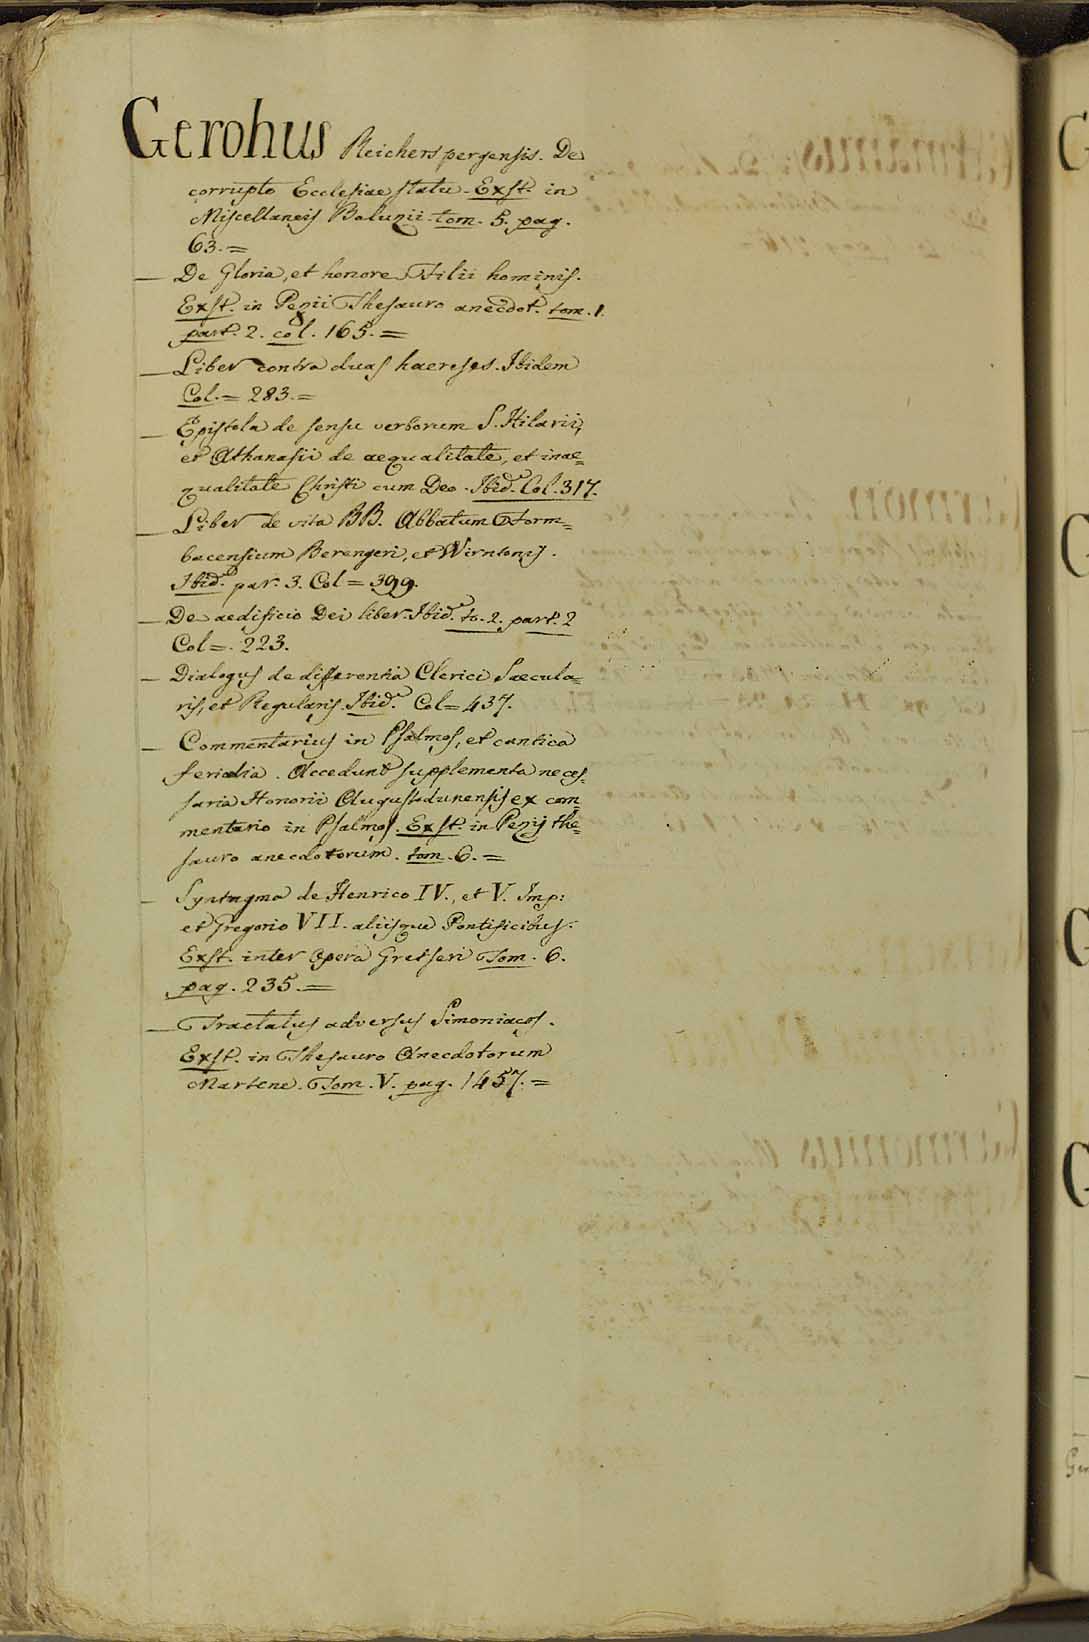 Gerohus Reicherspergensis. De
corrupto Ecclesiae statu. Exst. in
Miscellaneis Baluzii. tom. 5. pag.
63. =
— De Gloria, et honore Filii hominis.
Exst. in Pezii Thesauro anecdot. tom. 1.
part. 2. col. 165. =
— Liber contra duas haereses. Ibidem
Col. = 283. =
— Epistola de sensu verborum S. Hilarii,
et Athanasii de aequalitate, et inae=
qualitate Christi cum Deo. Ibid. Col. 317.
— Liber de vita BB. Abbatum Form=
bacensium Berengeri, et Wirntonis.
Ibid. par. 3. Col = 399.
— De aedificio Dei liber. Ibid. to. 2. part. 2
Col =. 223.
— Dialogus de differentia Clerici Saecula=
ris, et Regularis. Ibid. Col = 437.
— Commentarius in Psalmos, et cantica
ferialia. Accedunt supplementa neces=
saria Honorii Augustodunensis ex com=
mentario in Psalmos. Exst. in Pezij the=
sauro anecdotorum. tom. 6. =
— Syntagma de Henrico IV., et V. Imp:
et Gregorio VII. aliisque Pontificibus.
Exst. inter opera Gretseri Tom. 6.
pag. 235. =
— Tractatus adversus Simoniacos.
Exst. in Thesauro Anecdotorum
Martene. Tom. V. pag. 1457. =